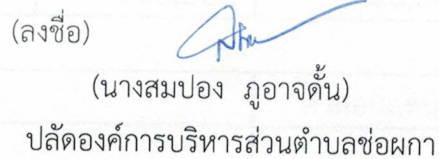 (ลงชื่อ)
(นางสมปอง ภูอาจดั้น)
ปลัดองค์การบริหารส่วนตำบลช่อผกา